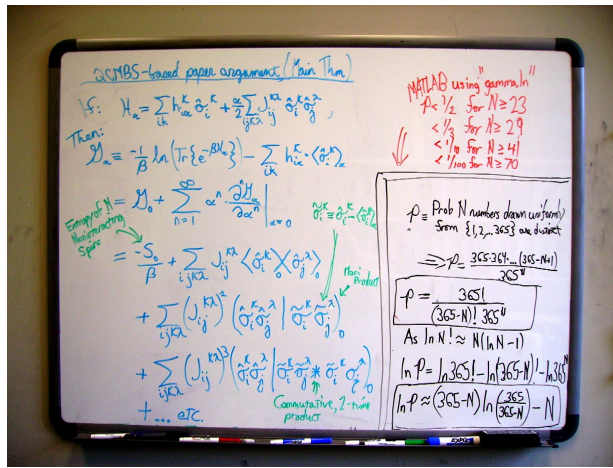 QSMBS-based paper argument (Main Thm)
If: H_α = Σ_{iκ} h_{iα}^κ σ̂_i^κ + α/2 Σ_{ijκλ} J_{ij}^{κλ} σ̂_i^κ σ̂_j^λ ,
Then:
G_α = -1/β ln(Tr{e^{-βH_α}}) - Σ_{iκ} h_{iα}^κ · ⟨σ̂_i^κ⟩_α
= G_0 + Σ_{n=1}^∞ α^n · ∂^n G_α / ∂α^n |_{α=0}
σ̃_i^κ ≡ σ̂_i^κ - ⟨σ̂_i^κ⟩_0
Entropy of N
Noninteracting
Spins
= -S_0/β + Σ_{ijκλ} J_{ij}^{κλ} ⟨σ̂_i^κ⟩_0 ⟨σ̂_j^λ⟩_0
Mori Product
+ Σ_{ijκλ} (J_{ij}^{κλ})² (σ̃_i^κ σ̃_j^λ | σ̃_i^κ σ̃_j^λ)_0
+ Σ_{ijκλ} (J_{ij}^{κλ})³ (σ̃_i^κ σ̃_j^λ | σ̃_i^κ σ̃_j^λ * σ̃_i^κ σ̃_j^λ)_0
Commutative, 2-time
product
+ ... etc.
MATLAB using "gammaln"
P < 1/2 for N ≥ 23
< 1/3 for N ≥ 29
< 1/10 for N ≥ 41
< 1/100 for N ≥ 70
P ≡ Prob N numbers drawn uniformly
from {1,2,...365} are distinct
⇒ P = 365·364·...(365-N+1) / 365^N
P = 365! / (365-N)! 365^N
As ln N! ≈ N(ln N - 1)
ln P = ln 365! - ln(365-N)! - ln 365^N
ln P ≈ (365-N) ln(365/(365-N)) - N
EXPO